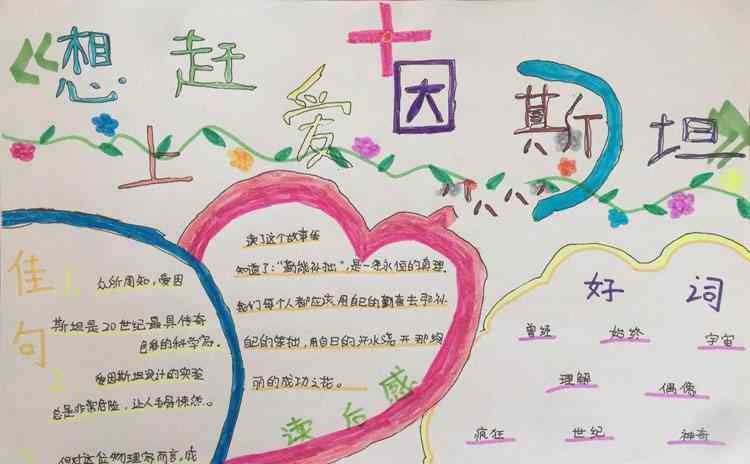 《想赶上爱因斯坦》
佳句
1. 众所周知，爱因
斯坦是20世纪最具传奇
色彩的科学家。
2 爱因斯坦设计的实验
总是非常危险，让人毛骨悚然。
但对这位物理家而言，成
读了这个故事我
知道了："勤能补拙"，是一条永恒的真理
我们每个人都应该用自己的勤奋去弥补
自己的笨拙，用自日的
丽的成功之花。
读后感
好词
曾经 始终 宇宙
理解 偶像
疯狂 世纪 神奇